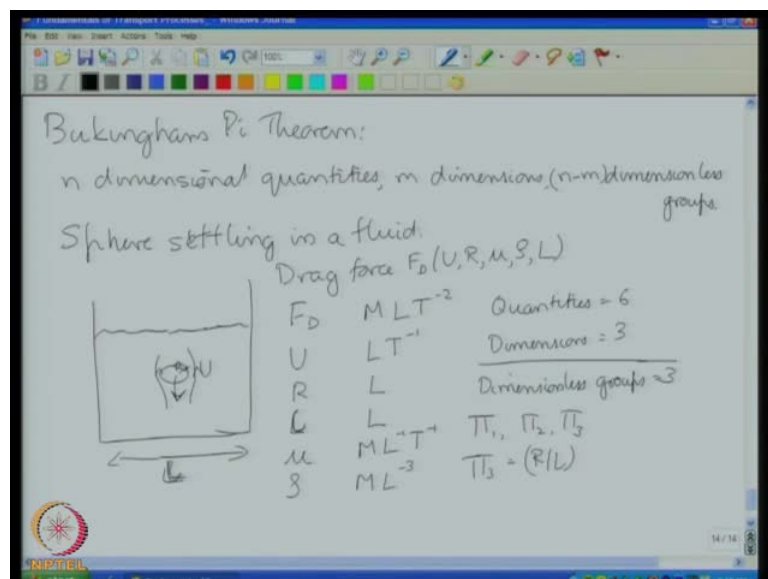 Fundamentals of Transport Processes - Windows Journal
File Edit View Insert Actions Tools Help
100%
B I
Bukinghams Pi Theorem:
n dimensional quantities, m dimensions, (n-m) dimensionless
groups.
Sphere settling in a fluid.
Drag force F_D (U, R, μ, ρ, L)
F_D MLT⁻² Quantities = 6
U LT⁻¹ Dimensions = 3
R L Dimensionless groups = 3
L L
μ ML⁻¹T⁻¹ Π₁, Π₂, Π₃
ρ ML⁻³ Π₃ = (R/L)
U
L
14 / 14
NPTEL